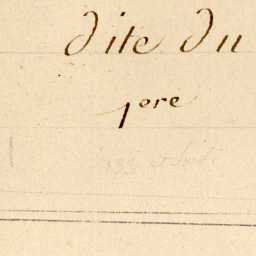 dite du
1ere